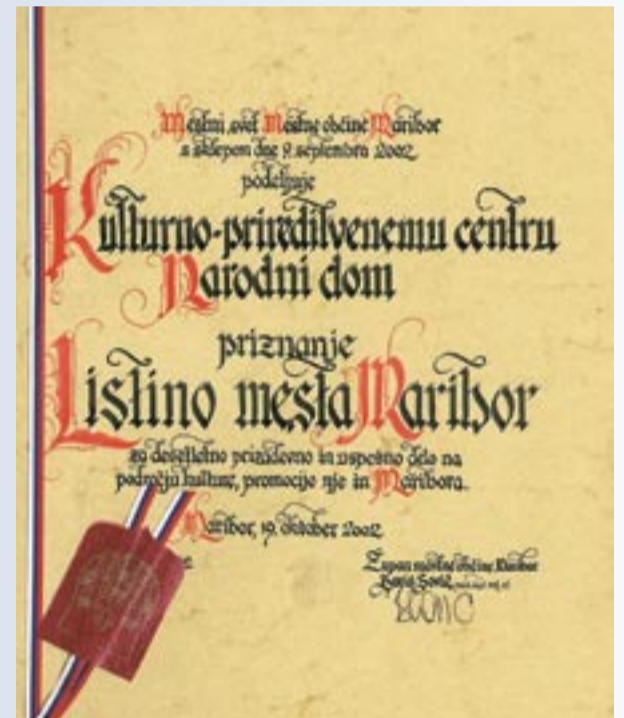 Mestni svet Mestne občine Maribor
s sklepom dne 9. septembra 2002
podeljuje
Kulturno-prireditvenemu centru
Narodni dom
priznanje
Listino mesta Maribor
za desetletno prizadevno in uspešno delo na
področju kulture, promocije nje in Maribora.
Maribor, 19. oktober 2002
Župan mestne občine Maribor
Boris Sovič